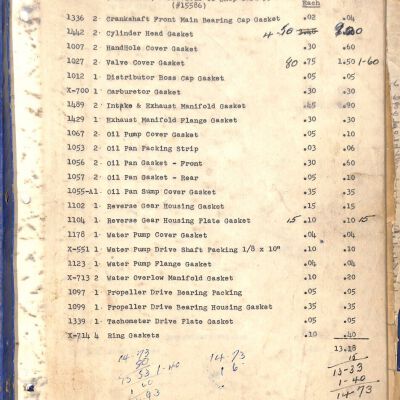 (#15586) Each
1336 2 Crankshaft Front Main Bearing Cap Gasket .02 .04
1442 2 Cylinder Head Gasket 4.50 9.00
1007 2 HandHole Cover Gasket .30 .60
1027 2 Valve Cover Gasket 80 .75 1.50 1-60
1012 1 Distributor Boss Cap Gasket .05 .05
X-700 1 Carburetor Gasket .30 .30
1489 2 Intake & Exhaust Manifold Gasket .45 .90
1429 1 Exhaust Manifold Flange Gasket .30 .30
1067 2 Oil Pump Cover Gasket .05 .10
1053 2 Oil Pan Packing Strip .03 .06
1056 2 Oil Pan Gasket - Front .30 .60
1057 2 Oil Pan Gasket - Rear .05 .10
1055-A1 Oil Pan Sump Cover Gasket .35 .35
1102 1 Reverse Gear Housing Gasket .15 .15
1104 1 Reverse Gear Housing Plate Gasket 15 .10 .10 15
1178 1 Water Pump Cover Gasket .04 .04
X-551 1 Water Pump Drive Shaft Packing 1/8 x 10" .10 .10
1123 1 Water Pump Flange Gasket .04 .04
X-713 2 Water Overlow Manifold Gasket .10 .20
1097 1 Propeller Drive Bearing Packing .05 .05
1099 1 Propeller Drive Bearing Housing Gasket .35 .35
1339 1 Tachometer Drive Plate Gasket .05 .05
X-714 4 Ring Gaskets .10 .40
13.18
15
13-33
1-40
14-73
14-73
14-73
1-40